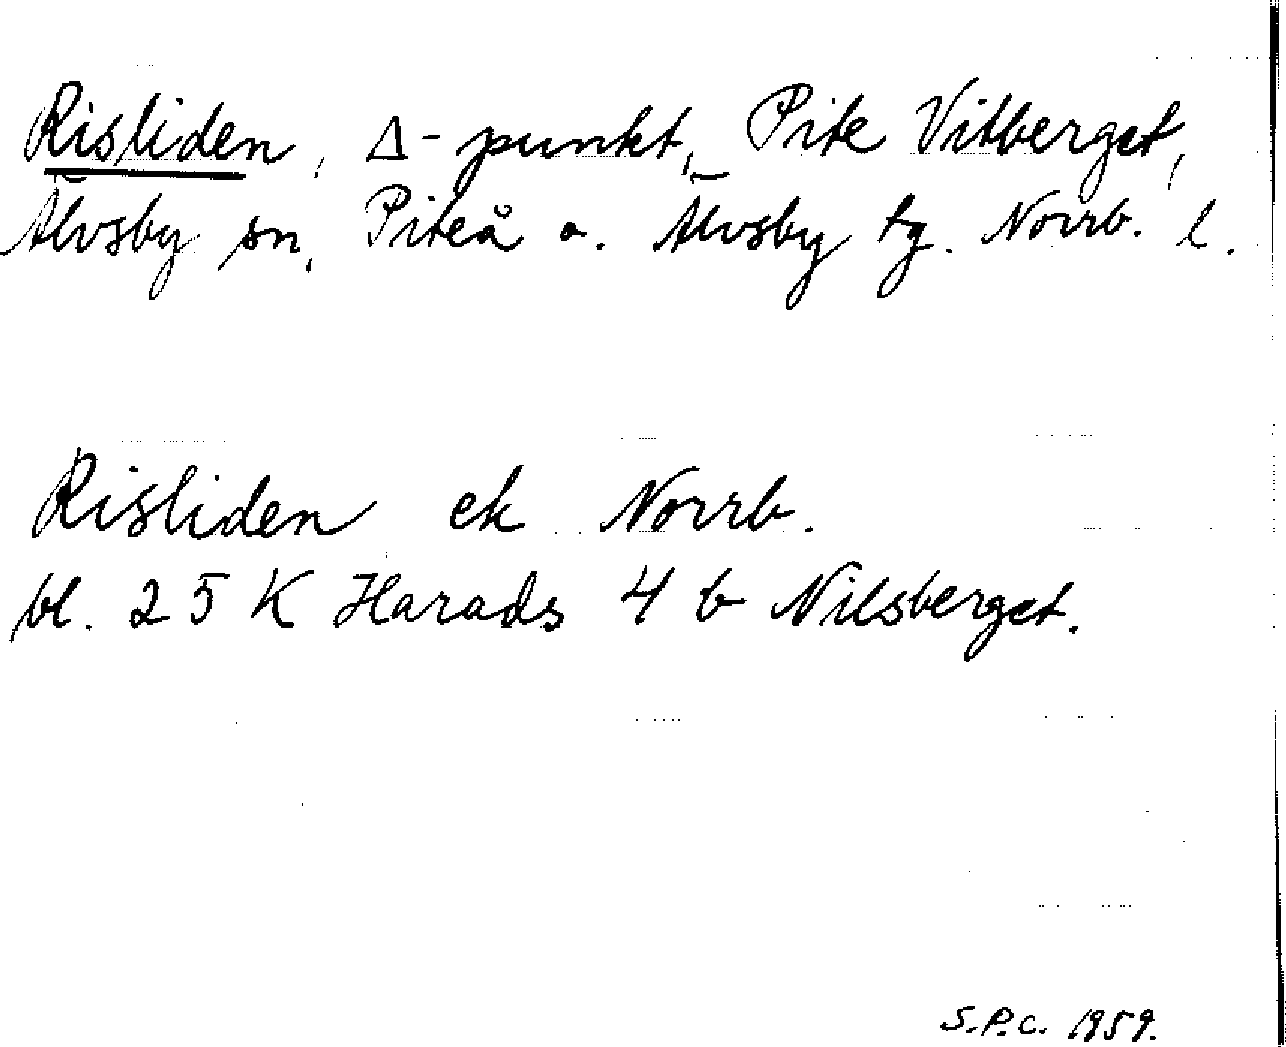 Risliden, Δ-punkt, Pite Vitberget,
Älvsby sn, Piteå o. Älvsby tg. Norrb. l.
Risliden ek Norrb.
bl. 25 K Harads 4 b Nilsberget.
S.P.C. 1959.